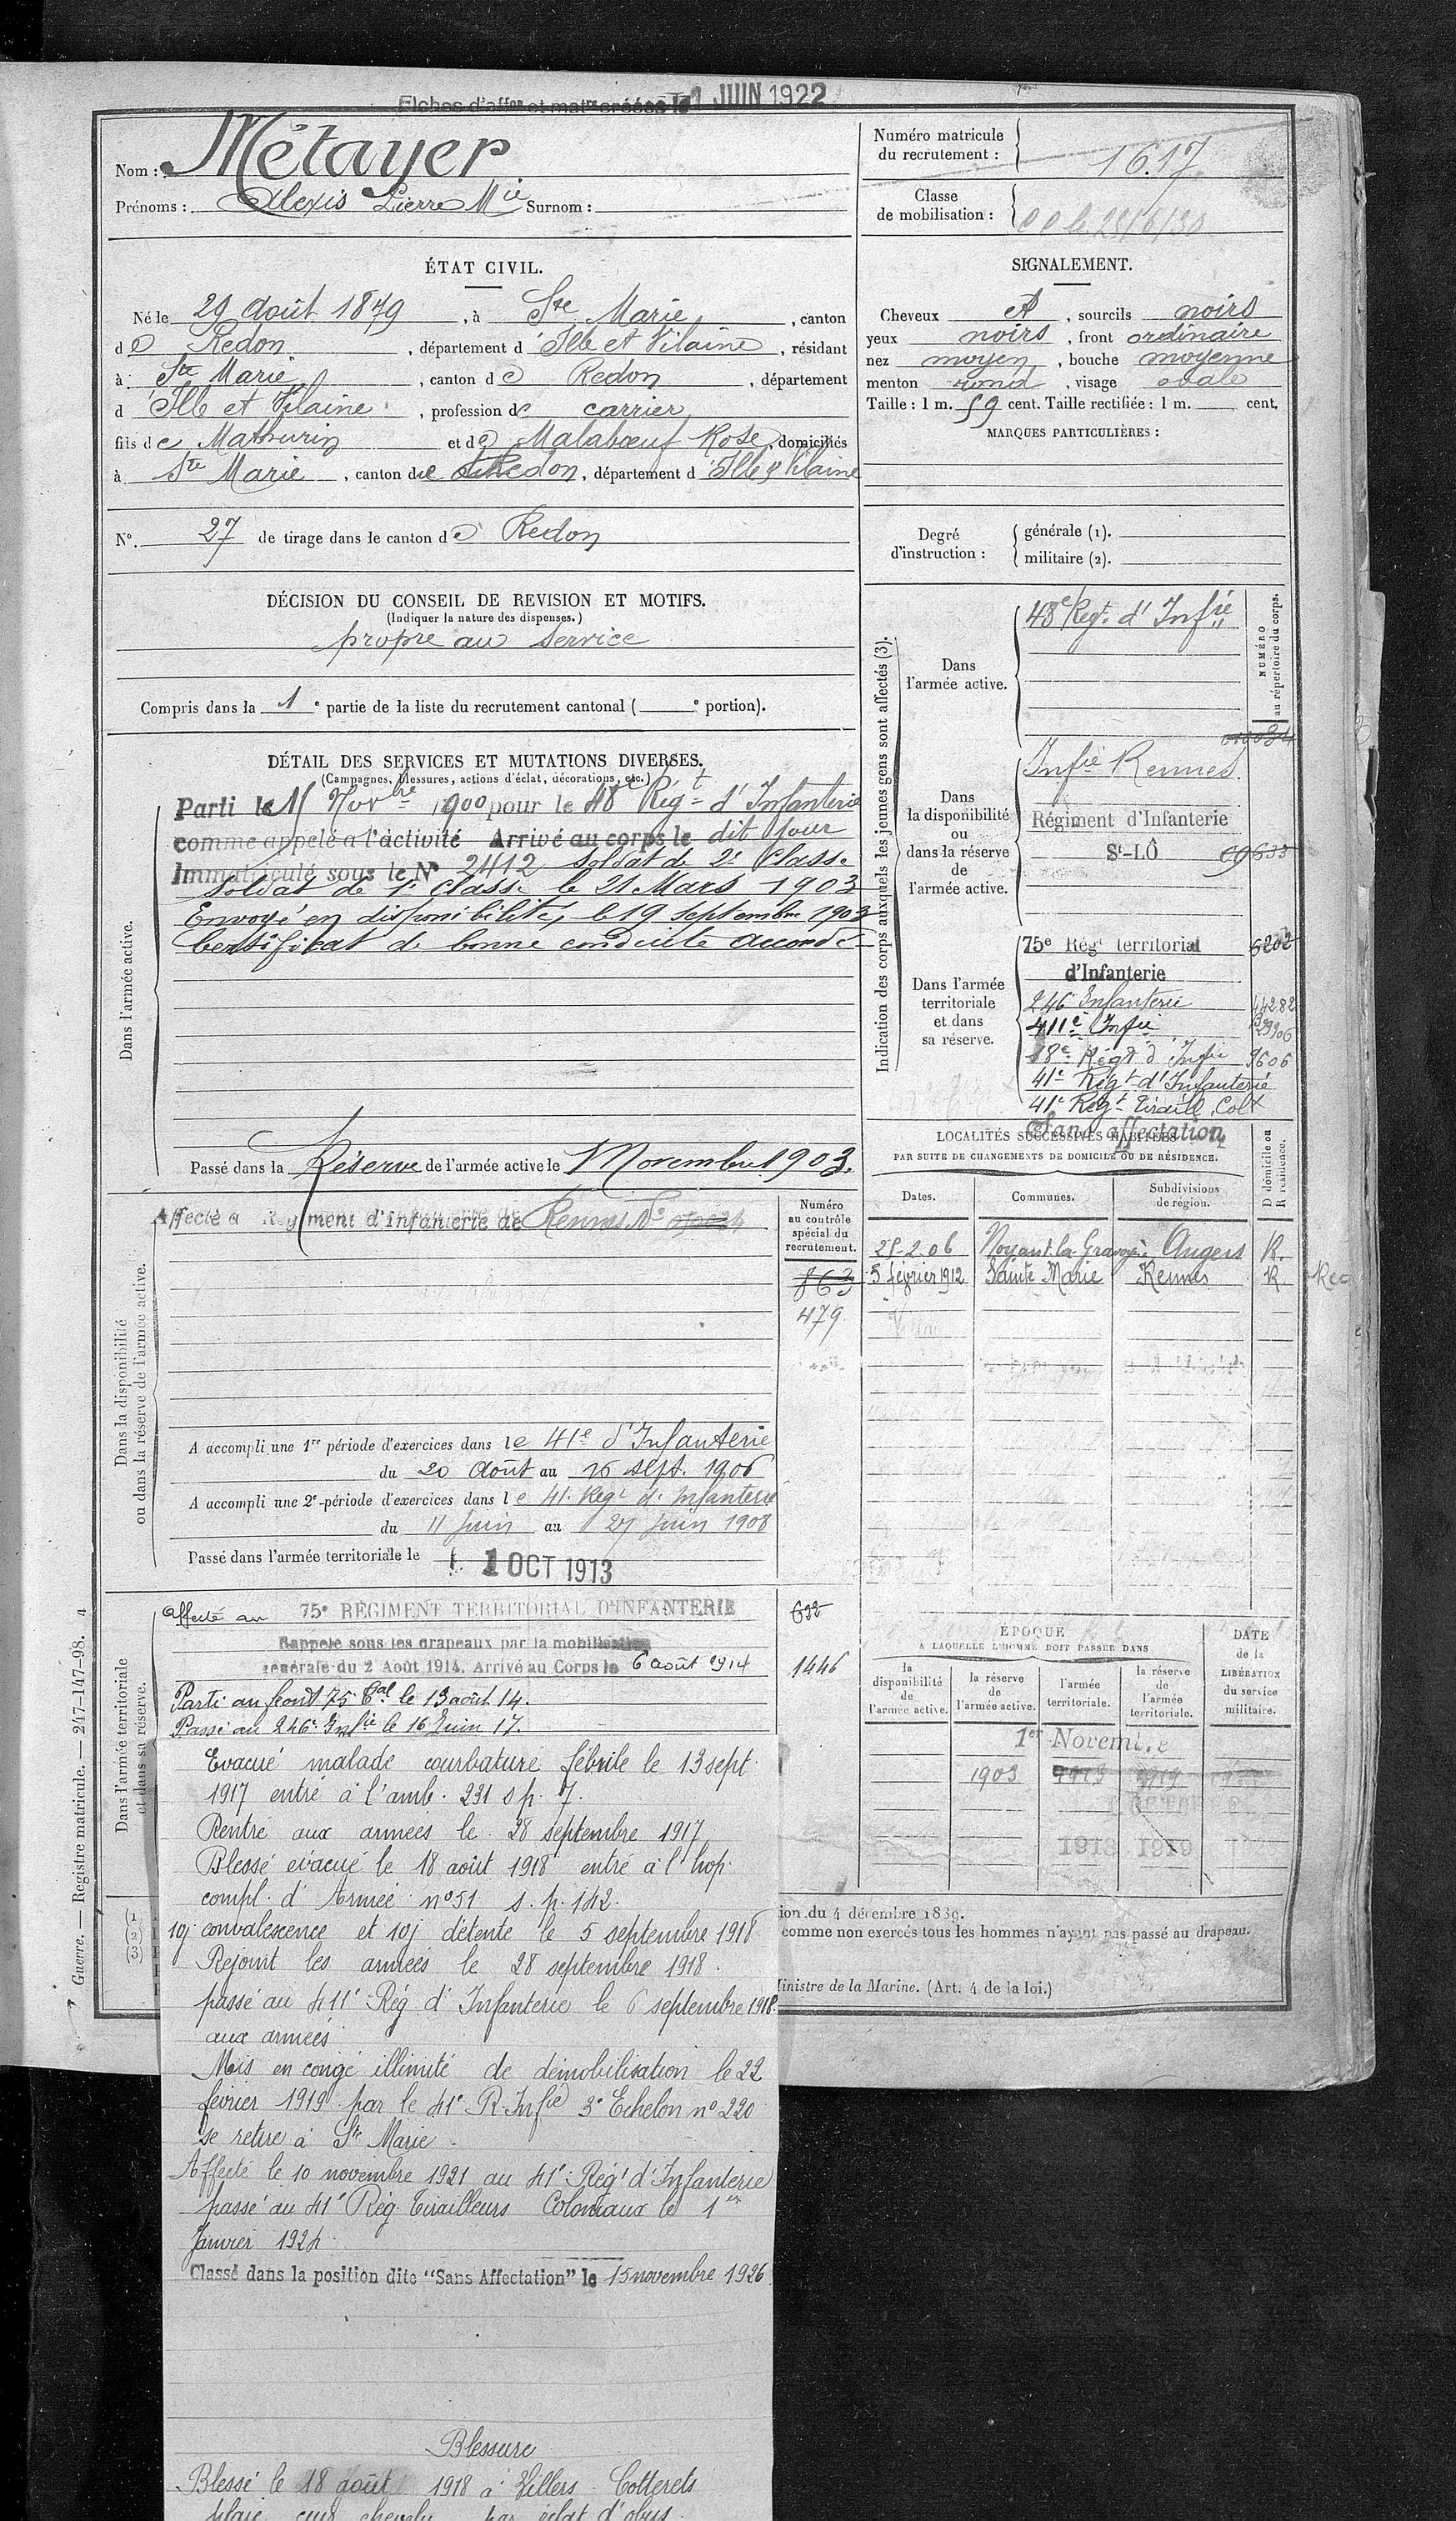 Fiches d'affon et matre créées le 1 JUIN 1922
Nom : Métayer
Prénoms : Alexis Pierre Mie Surnom :
Numéro matricule
du recrutement : 1617
Classe
de mobilisation :
ÉTAT CIVIL.
Né le 29 août 1879, à Ste Marie, canton
de Redon, département d'Ille et Vilaine, résidant
à Ste Marie, canton de Redon, département
d'Ille et Vilaine, profession de carrier
fils de Mathurin et de Malabœuf Rose, domiciliés
à Ste Marie, canton de Redon, département d'Ille & Vilaine
N° 27 de tirage dans le canton de Redon
SIGNALEMENT.
Cheveux et, sourcils noirs
yeux noirs, front ordinaire
nez moyen, bouche moyenne
menton rond, visage ovale
Taille : 1 m. 59 cent. Taille rectifiée : 1 m. cent.
MARQUES PARTICULIÈRES :
Degré
d'instruction :
générale (1).
militaire (2).
DÉCISION DU CONSEIL DE REVISION ET MOTIFS.
(Indiquer la nature des dispenses.)
propre au service
Compris dans la 1e partie de la liste du recrutement cantonal ( e portion).
DÉTAIL DES SERVICES ET MUTATIONS DIVERSES.
(Campagnes, blessures, actions d'éclat, décorations, etc.)
Dans l'armée active.
Parti le 15 Novbre 1900 pour le 48e Régt d'Infanterie
comme appelé à l'activité Arrivé au corps le dit jour
Immatriculé sous le N° 2412 soldat de 2e Classe
Soldat de 1e Classe le 21 Mars 1903
Envoyé en disponibilité, le 19 septembre 1903
Certificat de bonne conduite accordé
Passé dans la Réserve de l'armée active le 1 Novembre 1903.
Indication des corps auxquels les jeunes gens sont affectés (3).
NUMÉRO
au répertoire du corps.
Dans
l'armée active.
48e Régt d'Infie
Dans
la disponibilité
ou
dans la réserve
de
l'armée active.
Infie Rennes
Régiment d'Infanterie
St-LÔ
Dans l'armée
territoriale
et dans
sa réserve.
75e Régt territorial 6202
d'Infanterie
246 Infanterie 44282
411e Infie
18e Régt d'Infie 9606
41e Régt d'Infanterie
41e Régt Tiraill. Colx
Sans affectation
LOCALITÉS SUCCESSIVES HABITÉES
PAR SUITE DE CHANGEMENTS DE DOMICILE OU DE RÉSIDENCE.
Dates. Communes. Subdivisions
de région. D domicile ou
R résidence.
25-2-06 Noyant-la-Gravoyère Angers R.
5 février 1912 Sainte Marie Rennes R
Dans la disponibilité
ou dans la réserve de l'armée active.
Affecté a Régiment d'infanterie de Rennes N°
Numéro
au contrôle
spécial du
recrutement.
863
479
A accompli une 1re période d'exercices dans le 41e d'Infanterie
du 20 Août au 16 sept. 1906
A accompli une 2e période d'exercices dans le 41 Régt d'Infanterie
du 11 Juin au 27 Juin 1908
Passé dans l'armée territoriale le 1 OCT 1913
Dans l'armée territoriale
et dans sa réserve.
Affecté au 75e RÉGIMENT TERRITORIAL D'INFANTERIE 692
Rappelé sous les drapeaux par la mobilisation
générale du 2 Août 1914. Arrivé au Corps le 6 août 1914 1446
Parti au front 75 tal le 13 août 14.
Passé au 246e Infie le 16 Juin 17.
Evacué malade courbature fébrile le 13 sept.
1917 entré à l'amb. 231 s p. 7.
Rentré aux armées le 28 septembre 1917
Blessé évacué le 18 août 1918 entré à l'hop.
compl. d'Armée n° 51 s. p. 142.
10j convalescence et 10j détente le 5 septembre 1918
Rejoint les armées le 28 septembre 1918.
passé au 411e Rég. d'Infanterie le 6 septembre 1918.
aux armées
Mis en congé illimité de démobilisation le 22
février 1919 par le 41e R. Infie 3e Echelon n° 220
se retire à Ste Marie.
Affecté le 10 novembre 1921 au 41e Régt d'Infanterie
passé au 41e Rég. Tirailleurs Coloniaux le 1er
Janvier 1924.
Classé dans la position dite "Sans Affectation" le 15 novembre 1926
ÉPOQUE
A LAQUELLE L'HOMME DOIT PASSER DANS
la
disponibilité
de
l'armée active.
la réserve
de
l'armée active.
l'armée
territoriale.
la réserve
de
l'armée
territoriale.
DATE
de la
LIBÉRATION
du service
militaire.
1er Novembre
1903 1913 1919
1913 1919
(1)
(2)
(3)
ion du 4 décembre 1889.
comme non exercés tous les hommes n'ayant pas passé au drapeau.
Ministre de la Marine. (Art. 4 de la loi.)
Guerre. — Registre matricule. — 247-147-98.
Blessure
Blessé le 18 août 1918 à Villers-Cotterets
plaie cuir chevelu par éclat d'obus.